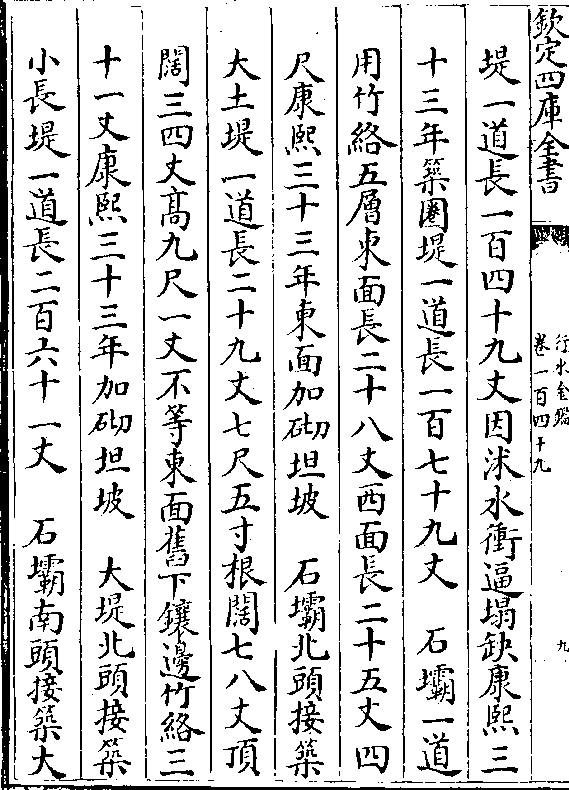 欽定四庫全書
行水金鑑
卷一百四十九
九
堤一道長一百四十九丈因沭水衝逼塌缺康熙三
十三年築圈堤一道長一百七十九丈　石壩一道
用竹絡五層東面長二十八丈西面長二十五丈四
尺康熙三十三年東面加砌坦坡　石壩北頭接築
大土堤一道長二十九丈七尺五寸根闊七八丈頂
闊三四丈髙九尺一丈不等東面舊下鑲邊竹絡三
十一丈康熙三十三年加砌坦坡　大堤北頭接築
小長堤一道長二百六十一丈　石壩南頭接築大